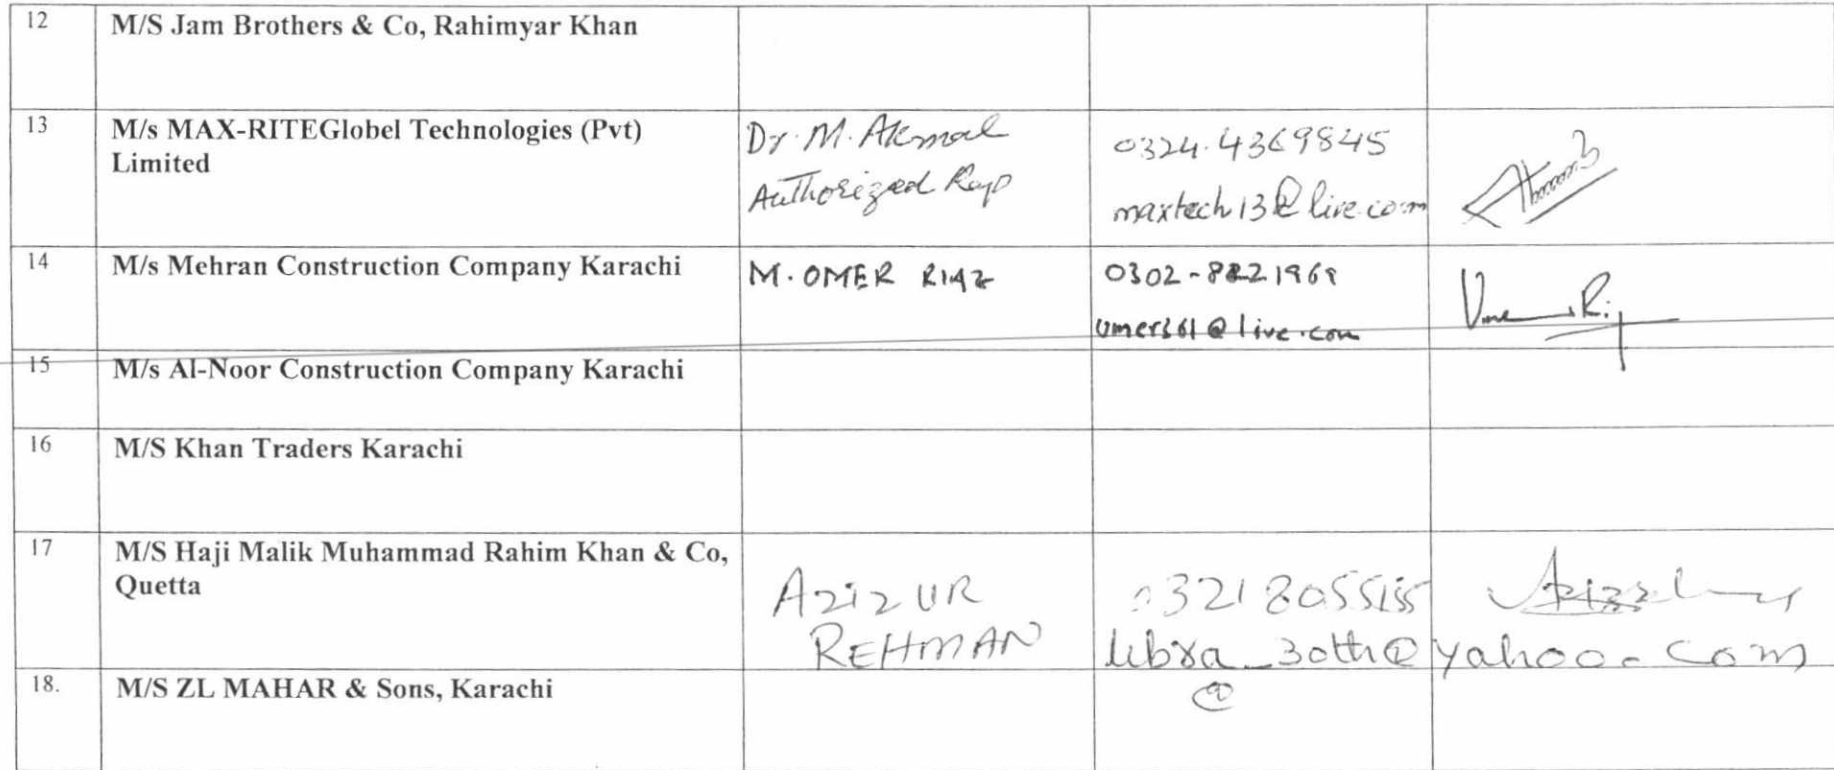 12 M/S Jam Brothers & Co, Rahimyar Khan
13 M/s MAX-RITEGlobel Technologies (Pvt) Limited
Dr. M. Akmal
Authorized Rep
0324-4369845
maxtech13@live.com
14 M/s Mehran Construction Company Karachi
M. OMER RIAZ
0302-8221969
umer361@live.com
15 M/s Al-Noor Construction Company Karachi
16 M/S Khan Traders Karachi
17 M/S Haji Malik Muhammad Rahim Khan & Co, Quetta
AZIZ UR
REHMAN
libra_30th@yahoo.com
@
18. M/S ZL MAHAR & Sons, Karachi